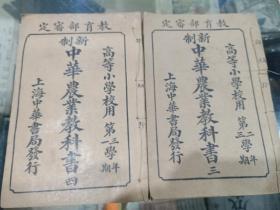 教育部審定
高等小學校用 第二三學年期
新制中華農業教科書三
上海中華書局發行
教育部審定
高等小學校用 第三一學年期
新制中華農業教科書四
上海中華書局發行